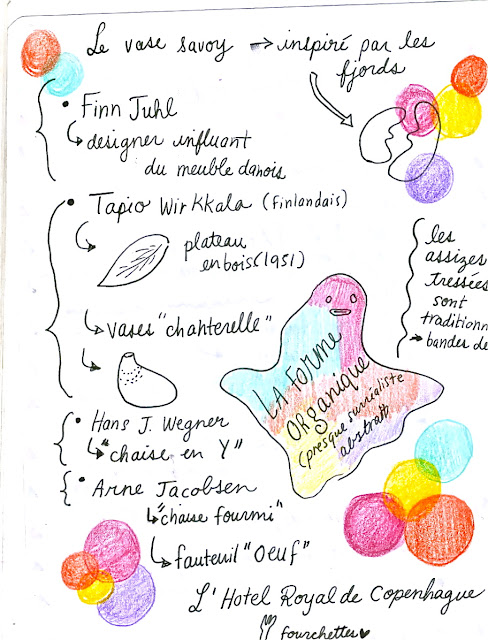 Le vase savoy → inspiré par les
fjords
• Finn Juhl
designer influant
du meuble danois
• Tapio Wirkkala (finlandais)
plateau
en bois (1951)
vases "chanterelle"
les
assizes
tressées
sont
traditionn
bandes de
LA FORME
ORGANIQUE
(presque surréaliste
abstratt
• Hans J. Wegner
"chaise en Y"
• Arne Jacobsen
"chaise fourmi"
fauteuil "Oeuf"
L'Hotel Royal de Copenhague
fourchettes ♥